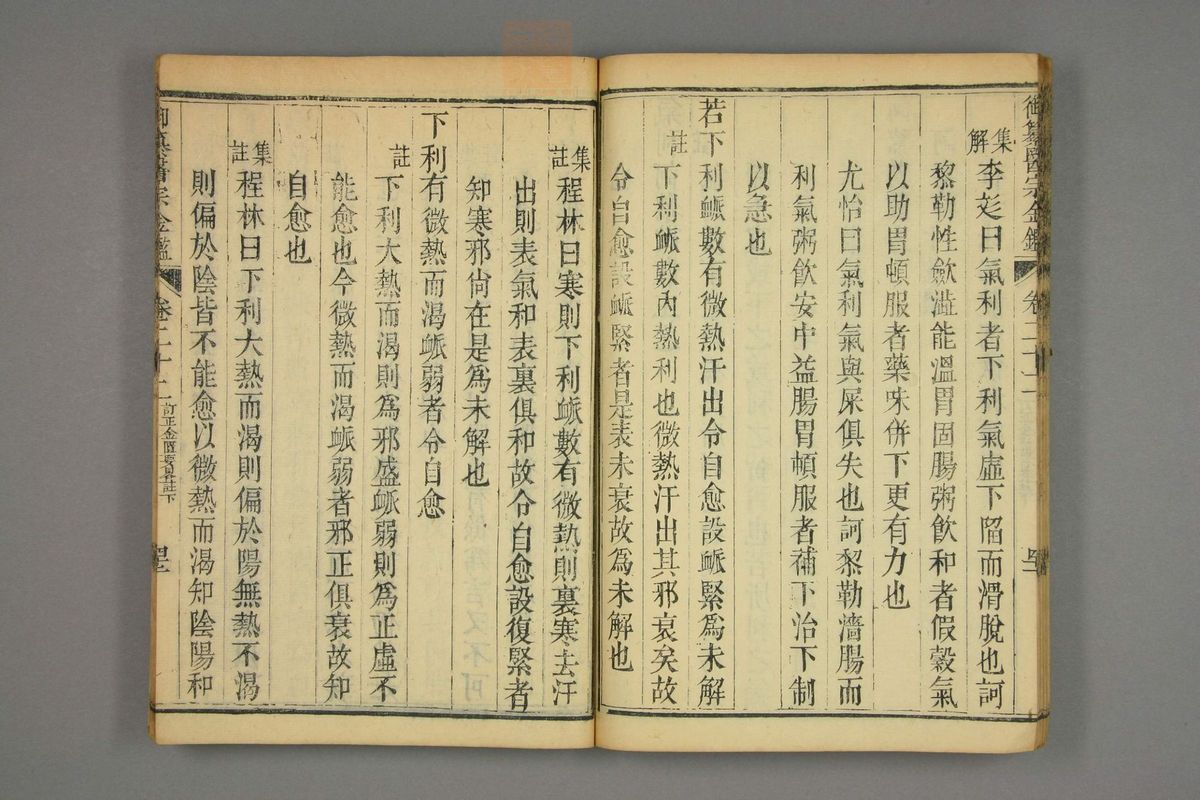 御纂醫宗金鑑 卷二十二
集解 李彣曰氣利者下利氣虛下陷而滑脫也訶
黎勒性斂澁能溫胃固腸粥飲和者假穀氣
以助胃頓服者藥味併下更有力也
尤怡曰氣利氣與屎俱失也訶黎勒濇腸而
利氣粥飲安中益腸胃頓服者補下治下制
以急也
若下利衇數有微熱汗出令自愈設衇緊爲未解
註 下利衇數內熱利也微熱汗出其邪衰矣故
令自愈設衇緊者是表未衰故爲未解也
集註 程林曰寒則下利衇數有微熱則裏寒去汗
出則表氣和表裏俱和故令自愈設復緊者
知寒邪尙在是爲未解也
下利有微熱而渴衇弱者令自愈
註 下利大熱而渴則爲邪盛衇弱則爲正虛不
能愈也今微熱而渴衇弱者邪正俱衰故知
自愈也
集註 程林曰下利大熱而渴則偏於陽無熱不渴
則偏於陰皆不能愈以微熱而渴知陰陽和
御纂醫宗金鑑 卷二十二 訂正金匱要畧註下